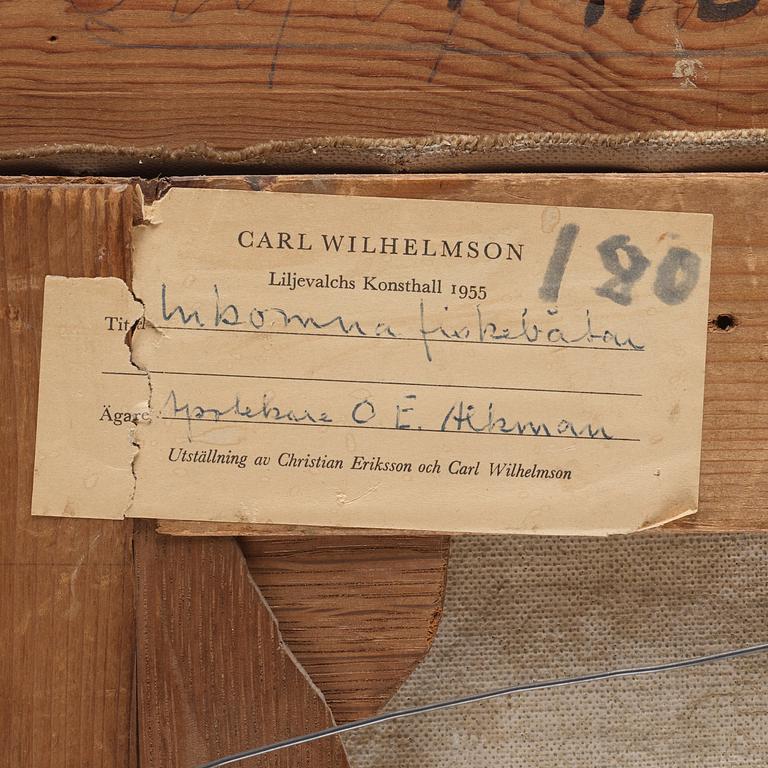 CARL WILHELMSON
120
Liljevalchs Konsthall 1955
Titel Inkomna fiskebåtar
Ägare Apotekare O E. Aikman
Utställning av Christian Eriksson och Carl Wilhelmson